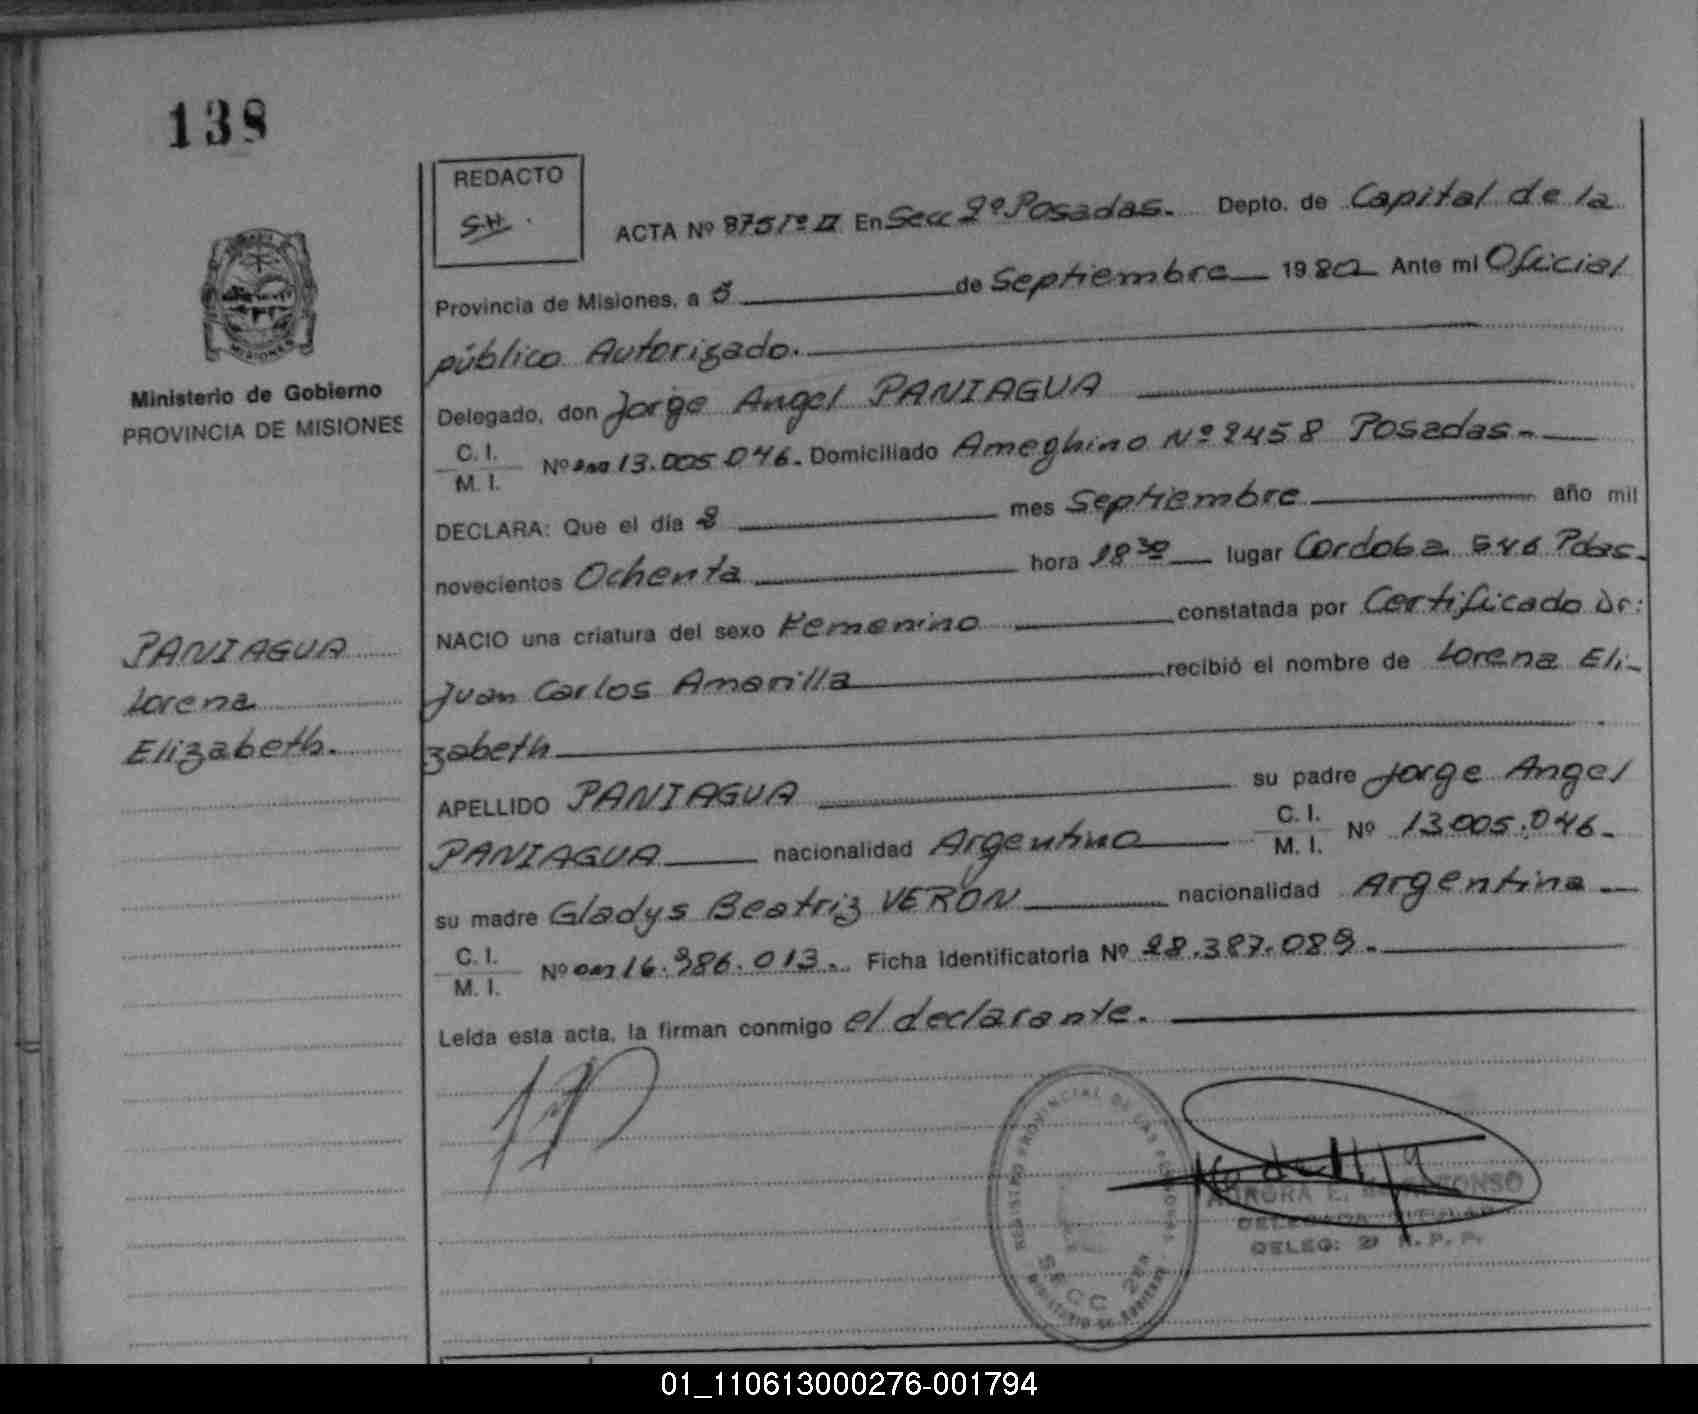 138
REDACTO
S.H.
ACTA Nº 875 Tº II En Secc 2º Posadas. Depto. de Capital de la
Provincia de Misiones, a 5 de Septiembre 1980 Ante mi Oficial
público Autorizado.
Delegado, don Jorge Angel PANIAGUA
C. I.
M. I. Nº DNI 13.005.046. Domiciliado Ameghino Nº 2458 Posadas.
DECLARA: Que el día mes Septiembre año mil
novecientos Ochenta hora 18 30 lugar Cordoba 546 Pdas.
NACIO una criatura del sexo Femenino constatada por Certificado Dr:
Juan Carlos Amarilla recibió el nombre de Lorena Eli-
zabeth
APELLIDO PANIAGUA su padre Jorge Angel
PANIAGUA nacionalidad Argentino C. I.
M. I. Nº 13.005.046.
su madre Gladys Beatriz VERON nacionalidad Argentina
C. I.
M. I. Nº DNI 16.986.013. Ficha Identificatoria Nº 28.387.089.
Leída esta acta, la firman conmigo el declarante.
Ministerio de Gobierno
PROVINCIA DE MISIONES
PANIAGUA
Lorena
Elizabeth.
MISIONES
REGISTRO PROVINCIAL DE LAS PERSONAS
SECC 2da
AURORA E. ILDEFONSO
DELEGADA TITULAR
DELEG: 2ª R. P. P.
01_110613000276-001794